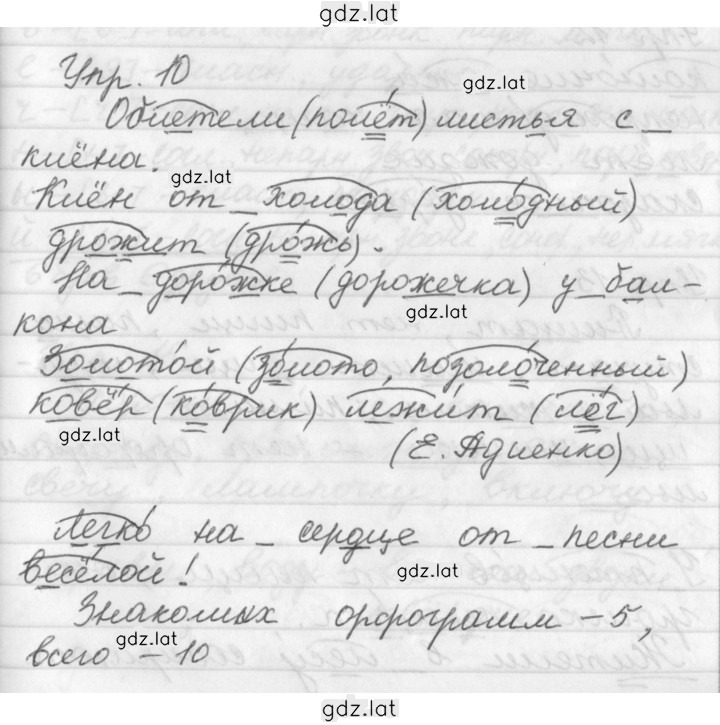 gdz.lat
Упр. 10
gdz.lat
Облетели (полёт) листья с_
клёна.
gdz.lat
Клён от_холода (холодный)
дрожит (дрожь).
На_дорожке (дорожечка) у_бал-
gdz.lat
кона
Золотой (золото, позолоченный)
ковёр (коврик) лежит (лёг)
gdz.lat
(Е. Авдиенко)
Легко на_сердце от_песни
весёлой!
gdz.lat
Знакомых орфограмм – 5,
gdz.lat
всего – 10
gdz.lat